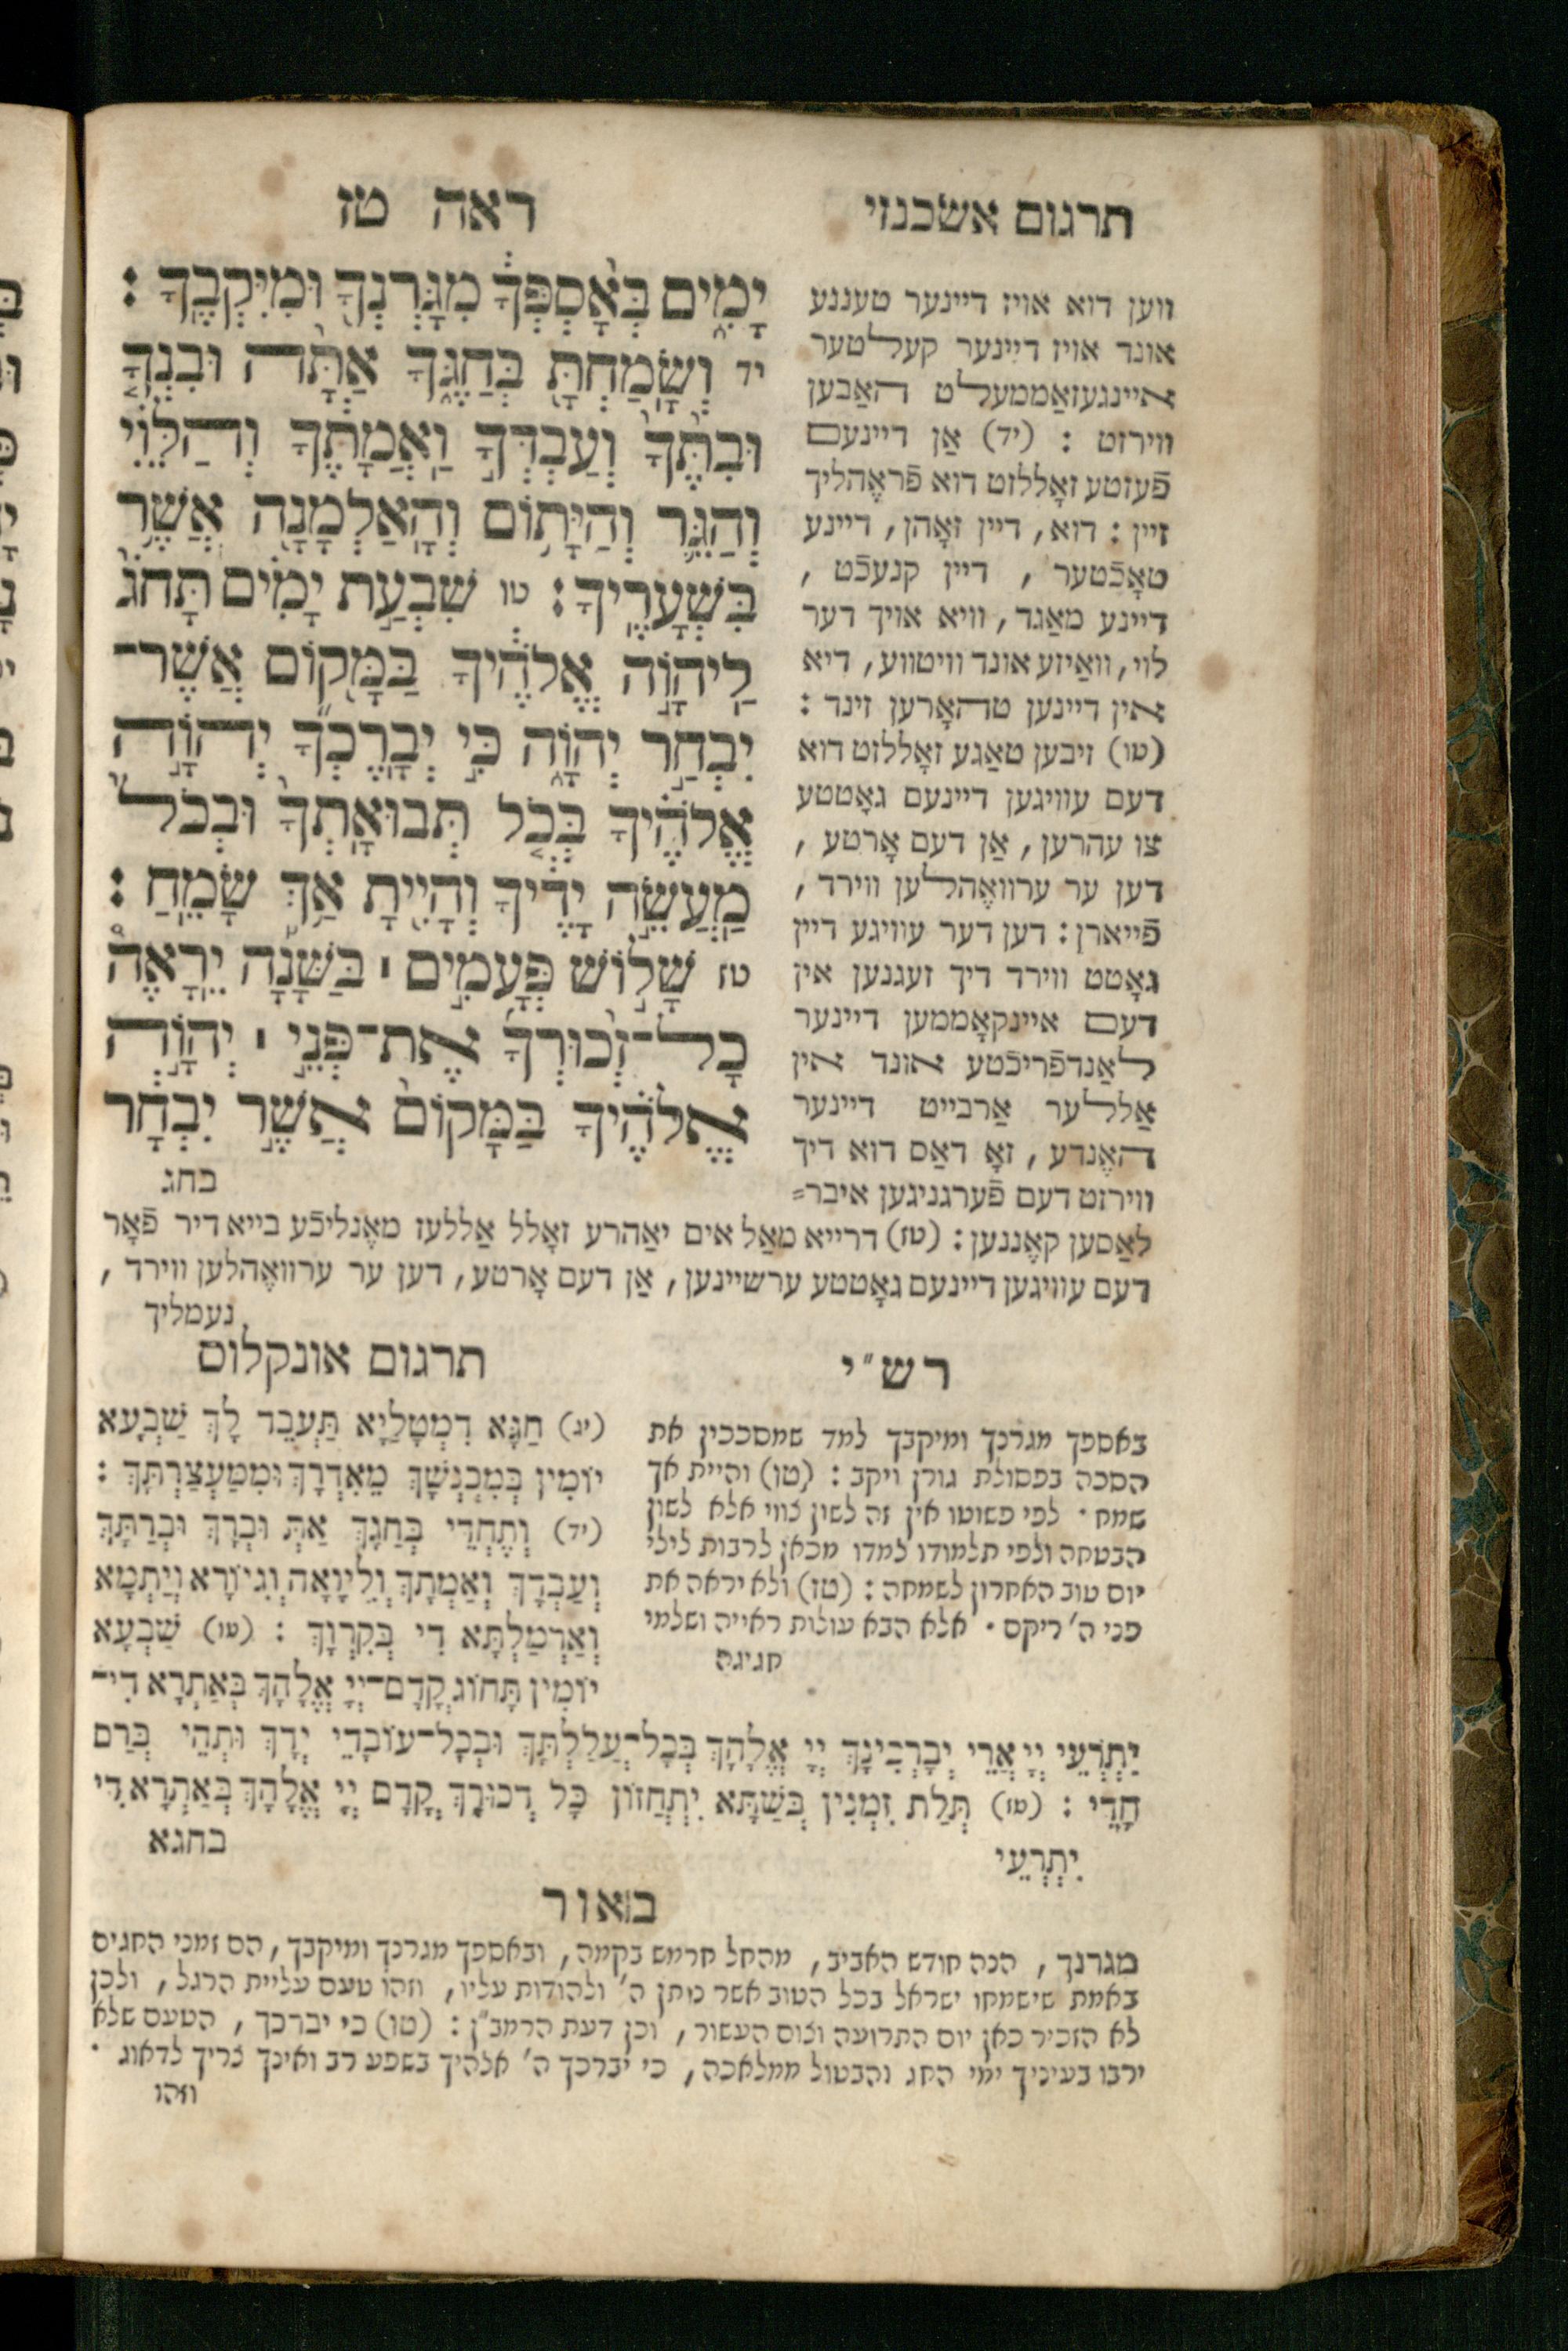 תרגום אשכנזי
ראה טז
יָמִ֑ים בְּאׇ֨סְפְּךָ֔ מִֽגׇּרְנְךָ֖ וּמִיִּקְבֶֽךָ׃
יד וְשָׂמַחְתָּ֖ בְּחַגֶּ֑ךָ אַתָּ֨ה וּבִנְךָ֤
וּבִתֶּ֙ךָ֙ וְעַבְדְּךָ֣ וַאֲמָתֶ֔ךָ וְהַלֵּוִ֗י
וְהַגֵּ֛ר וְהַיָּת֥וֹם וְהָאַלְמָנָ֖ה אֲשֶׁ֥ר
בִּשְׁעָרֶֽיךָ׃ טו שִׁבְעַ֣ת יָמִ֗ים תָּחֹג֙
לַיהוָ֣ה אֱלֹהֶ֔יךָ בַּמָּק֖וֹם אֲשֶׁר־
יִבְחַ֣ר יְהוָ֑ה כִּ֣י יְבָרֶכְךָ֞ יְהוָ֣ה
אֱלֹהֶ֗יךָ בְּכֹ֤ל תְּבוּאָֽתְךָ֙ וּבְכֹל֙
מַעֲשֵׂ֣ה יָדֶ֔יךָ וְהָיִ֖יתָ אַ֥ךְ שָׂמֵֽחַ׃
טז שָׁל֣וֹשׁ פְּעָמִ֣ים ׀ בַּשָּׁנָ֡ה יֵרָאֶ֨ה
כׇל־זְכוּרְךָ֜ אֶת־פְּנֵ֣י ׀ יְהוָ֣ה
אֱלֹהֶ֗יךָ בַּמָּקוֹם֙ אֲשֶׁ֣ר יִבְחָ֔ר
בחג
ווען דוא אויז דיינער טעננע
אונד אויז דיינער קעלטער
איינגעזאַממעלט האַבען
ווירזט : (יד) אַן דיינעם
פֿעזטע זאָללזט דוא פֿראָהליך
זיין : דוא, דיין זאָהן, דיינע
טאָכֿטער, דיין קנעכֿט,
דיינע מאַגד, וויא אויך דער
לוי, וואַיזע אונד וויטווע, דיא
אין דיינען טהאָרען זינד :
(טו) זיבען טאַגע זאָללזט דוא
דעם עוויגען דיינעם גאָטטע
צו עהרען, אַן דעם אָרטע,
דען ער ערוואֶהלען ווירד,
פֿייארן : דען דער עוויגע דיין
גאָטט ווירד דיך זעגנען אין
דעם איינקאָממען דיינער
לאַנדפֿריכֿטע אונד אין
אַללער אַרבייט דיינער
האֶנדע, זאָ דאַס דוא דיך
ווירזט דעם פֿערגניגען איבר=
לאַסען קאֶננען : (טז) דרייא מאַל אים יאַהרע זאָלל אַללעז מאֶנליכֿע בייא דיר פֿאָר
דעם עוויגען דיינעם גאָטטע ערשיינען, אַן דעם אָרטע, דען ער ערוואֶהלען ווירד,
נעמליך
רש״י
באספך מגרנך ומיקבך למד שמסככין את
הסכה בפסולת גורן ויקב : (טו) והיית אך
שמח · לפי פשוטו אין זה לשון צווי אלא לשון
הבטחה ולפי תלמודו למדו מכאן לרבות לילי
יום טוב האחרון לשמחה : (טז) ולא יראה את
פני ה׳ ריקם · אלא הבא עולות ראייה ושלמי
חגיגה
תרגום אונקלוס
(יג) חַגָּא דִמְטַלַיָא תַּעְבֵּד לָךְ שַׁבְעָא
יוֹמִין בְּמִכְנְשָׁךְ מֵאִדְרָךְ וּמִמַעְצַרְתָּךְ :
(יד) וְתֶחְדֵי בְּחַגָךְ אַתְּ וּבְרָךְ וּבְרַתָּךְ
וְעַבְדָךְ וְאַמְתָךְ וְלֵיוָאָה וְגִיּוֹרָא וְיִתְמָא
וְאַרְמַלְתָּא דִי בְּקִרְוָךְ : (טו) שַׁבְעָא
יוֹמִין תָּחוֹג קֳדָם־יְיָ אֱלָהָךְ בְּאַתְרָא דִי־
יִתְרְעֵי יְיָ אֲרֵי יְבָרְכִינָךְ יְיָ אֱלָהָךְ בְּכָל־עֲלַלְתָּךְ וּבְכָל־עוֹבָדֵי יְדָךְ וּתְהֵי בְּרַם
חָדֵי : (טז) תְּלַת זִמְנִין בְּשַׁתָּא יִתְחֲזוֹן כָּל דְכוּרָךְ קֳדָם יְיָ אֱלָהָךְ בְּאַתְרָא דִי
יִתְרְעֵי
בחגא
באור
מגרנך, הנה חודש האביב, מהחל חרמש בקמה, ובאספך מגרנך ומיקבך, הם זמני החגים
באמת שישמחו ישראל בכל הטוב אשר נותן ה׳ ולהודות עליו, וזהו טעם עליית הרגל, ולכן
לא הזכיר כאן יום התרועה וצום העשור, וכן דעת הרמב״ן : (טו) כי יברכך, הטעם שלא
ירבו בעיניך ימי החג והבטול ממלאכה, כי יברכך ה׳ אלהיך בשפע רב ואינך צריך לדאוג ·
וזהו